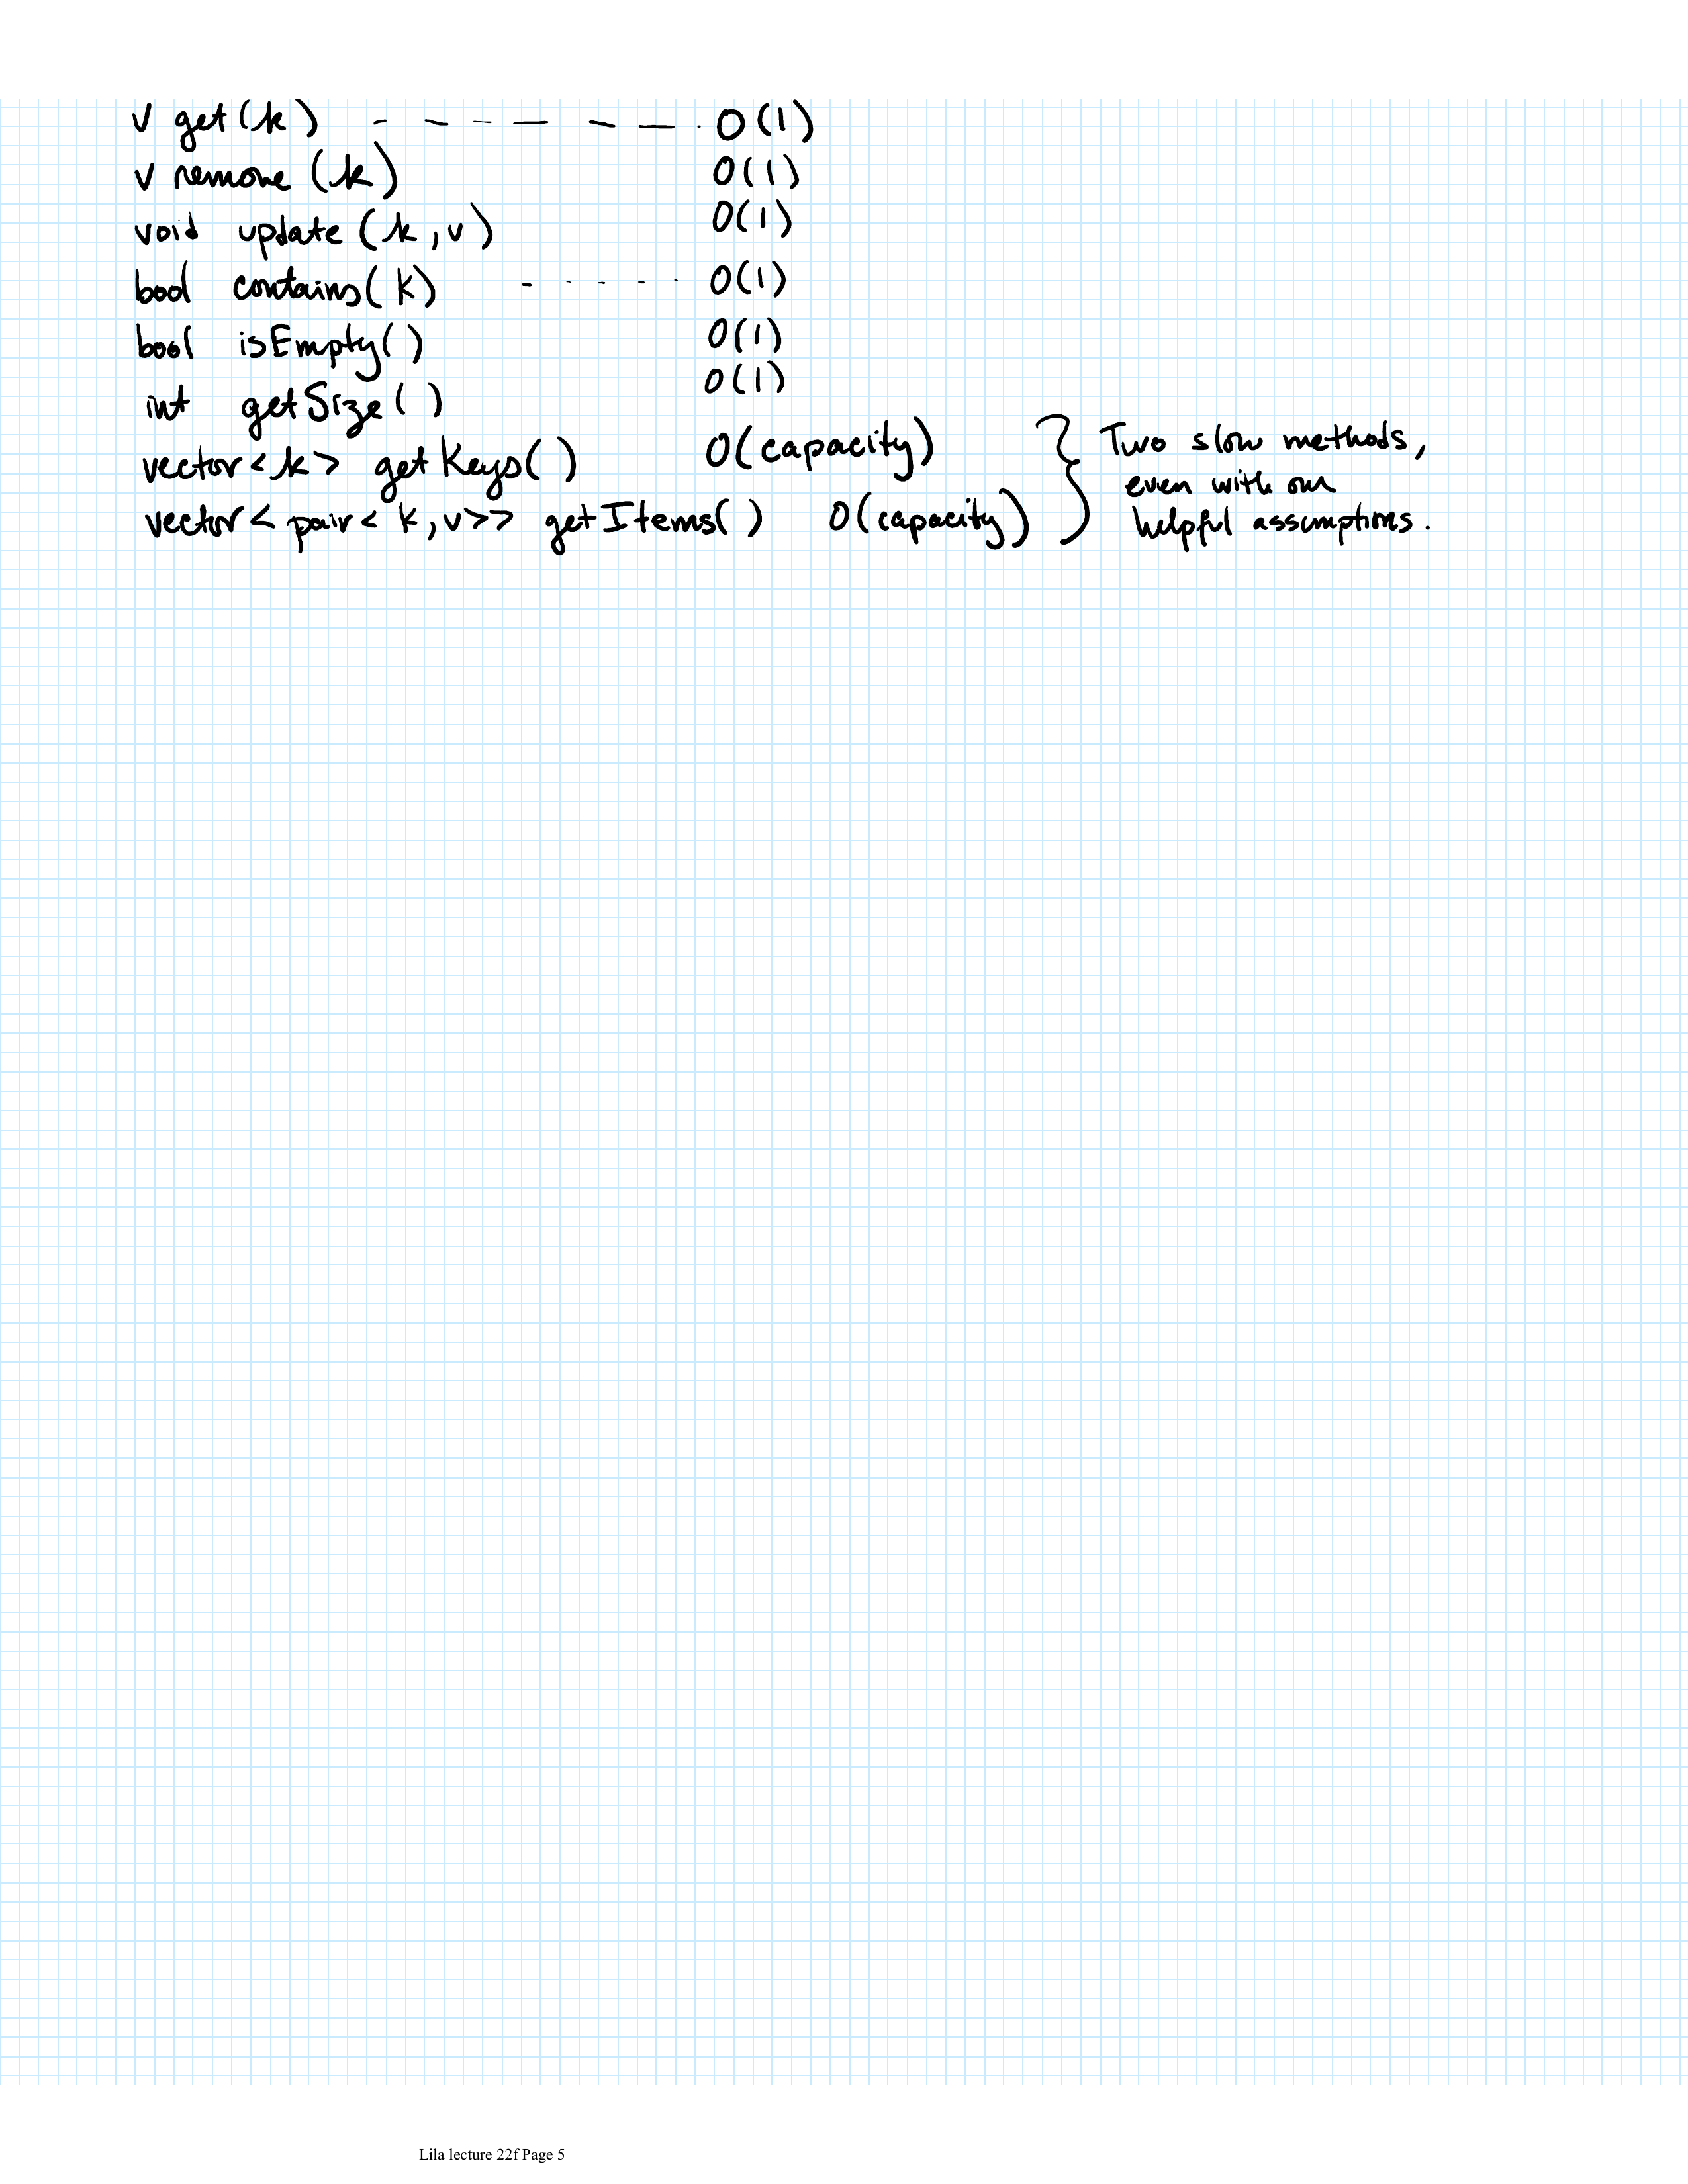 v get(k) - - - - - - - O(1)
v remove (k) O(1)
void update (k, v) O(1)
bool contains(k) - - - - - O(1)
bool isEmpty() O(1)
int getSize() O(1)
vector<k> getKeys() O(capacity)
vector<pair<k,v>> getItems() O(capacity)
} Two slow methods,
even with our
helpful assumptions.
Lila lecture 22f Page 5